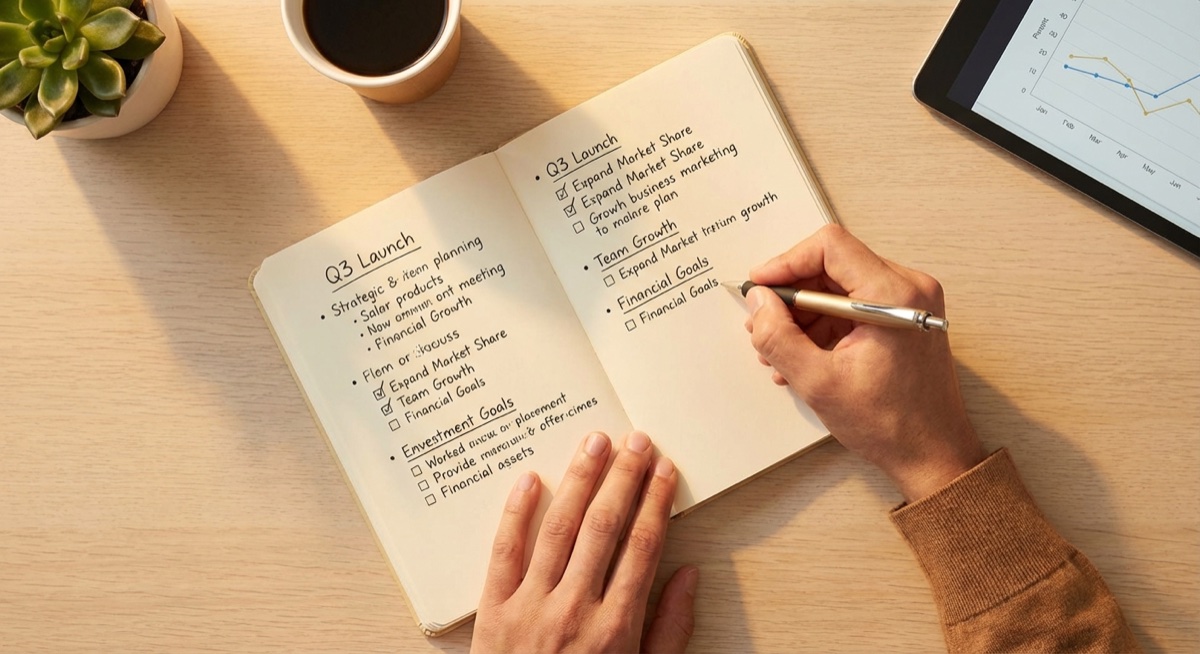 Q3 Launch
• Strategic & planning
• Salar products
• Now ont meeting
• Financial Growth
• Flem or
☑ Expand Market Share
☑ Team Growth
☐ Financial Goals
• Envestment Goals
☐ Worked placement
☐ Provide & offer
☐ Financial assets
• Q3 Launch
☑ Expand Market Share
☑ Expand Market Share
☐ Growh business marketing
to plan
• Team Growth
☐ Expand Market growth
• Financial Goals
☐ Financial Goals
Percent
40
30
20
10
0
Jan
Feb
Mar
Apr
May
Jun